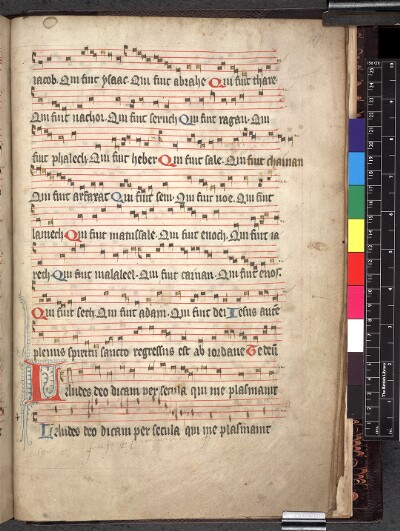 iacob. Qui fuit ysaac. Qui fuit abrahe Qui fuit thare
Qui fuit nachor. Qui fuit seruch Qui fuit ragau. Qui
fuit phalech. Qui fuit heber Qui fuit sale. Qui fuit chainan
Qui fuit arfaxat Qui fuit sem. Qui fuit noe. Qui fuit
lamech Qui fuit matussale. Qui fuit enoch. Qui fuit ia
rech. Qui fuit malaleel. Qui fuit cainan. Qui fuit enos.
Qui fuit seth. Qui fuit adam. Qui fuit dei Iesus autē
plenus spiritu sancto regressus est ab iordane Te deū
ludes deo dicam per secula qui me plasmauit
Laudes deo dicam per secula qui me plasmauit